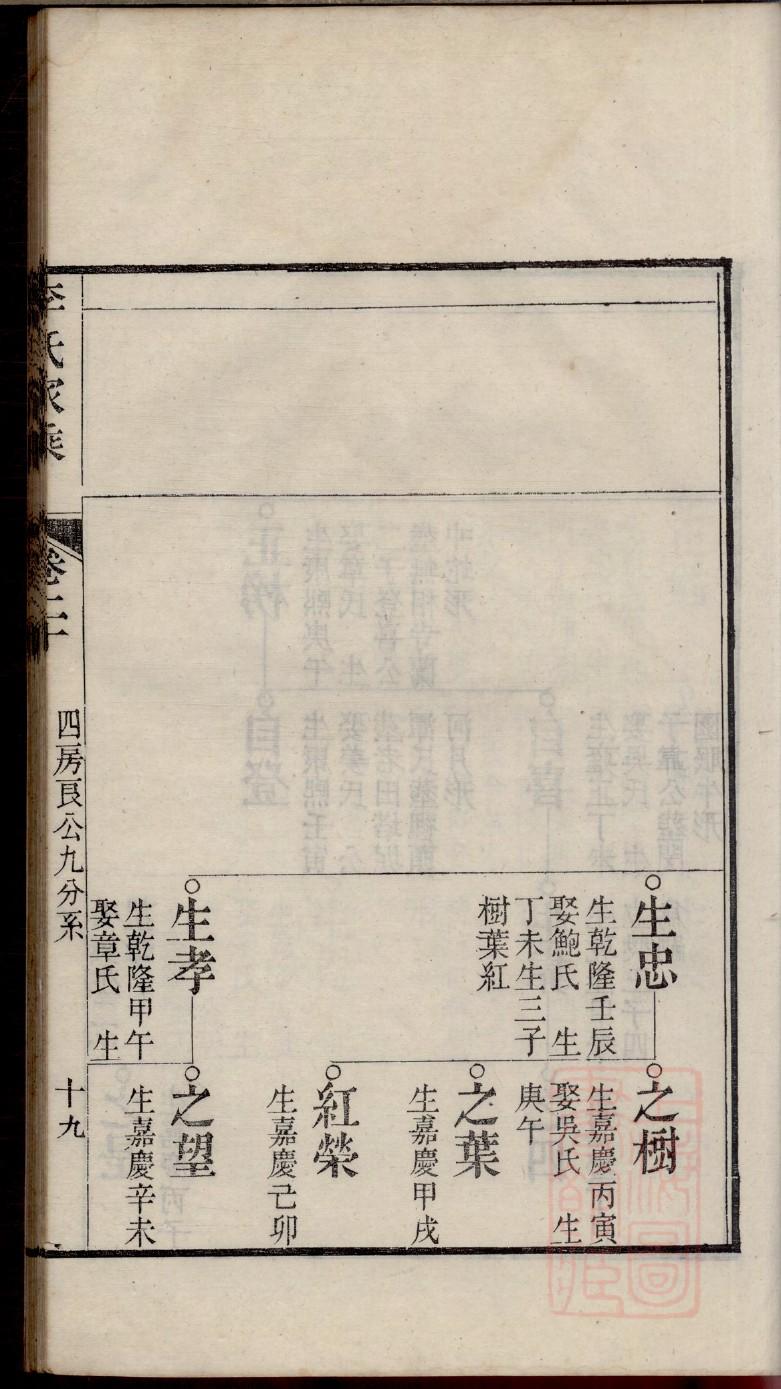 生忠
生乾隆壬辰
娶鮑氏　生
丁未生三子
樹葉紅
生孝
生乾隆甲午
娶章氏　生
之樹
生嘉慶丙寅
娶吳氏　生
庚午
之葉
生嘉慶甲戌
紅榮
生嘉慶己卯
之望
生嘉慶辛未
李氏家乘
卷二十
四房良公九分系
十九